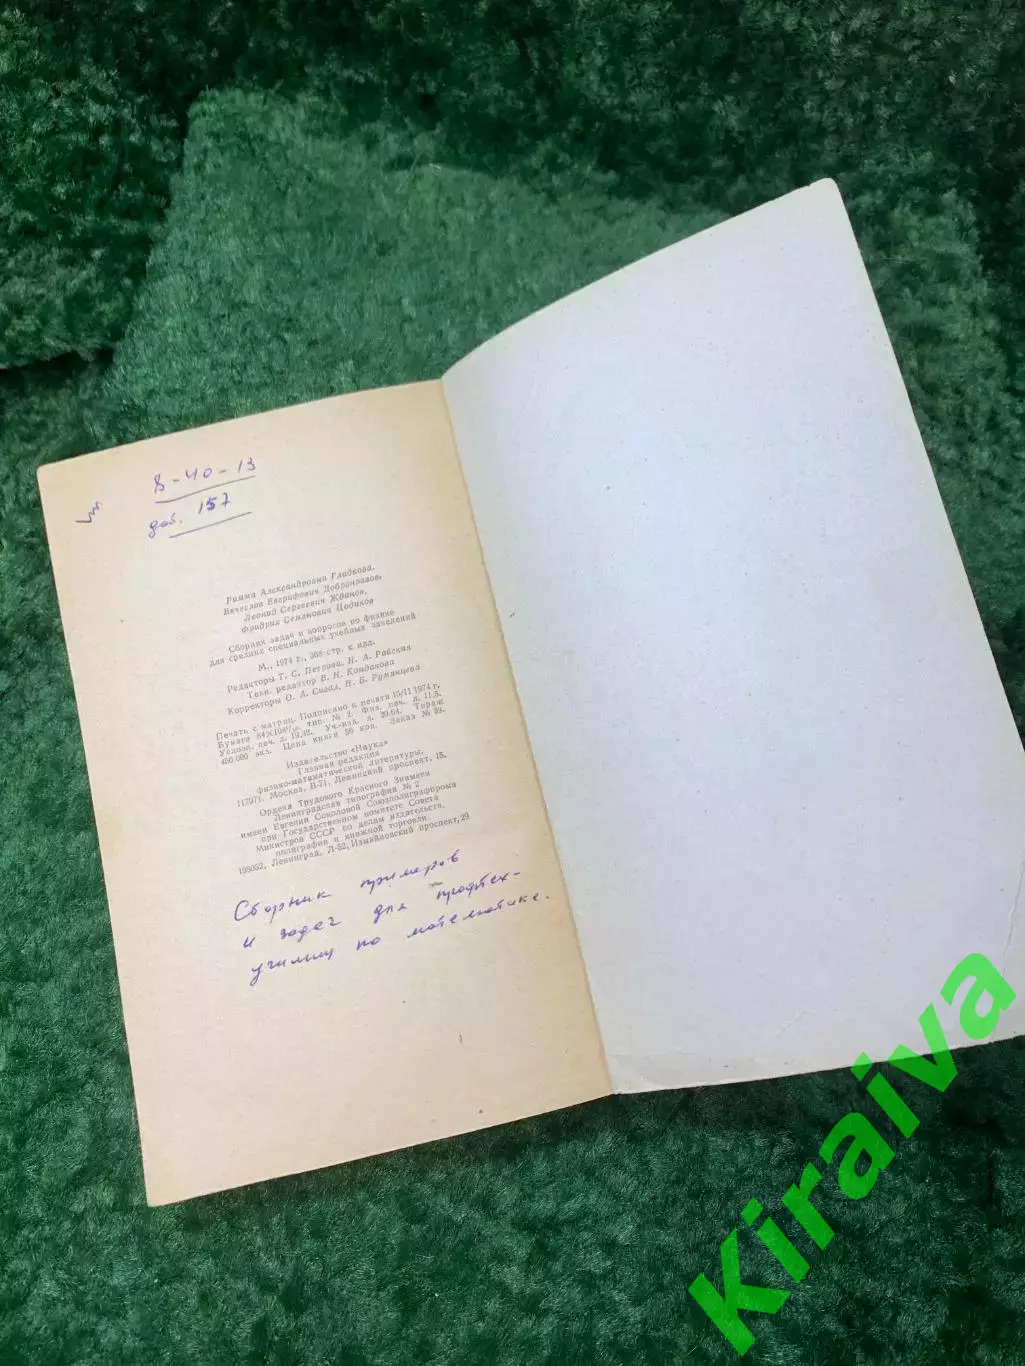 8-40-13
доб. 157
Римма Александровна Гладкова,
Вячеслав Евграфович Добронравов,
Леонид Сергеевич Жданов,
Фридрих Семенович Цодиков
Сборник задач и вопросов по физике
для средних специальных учебных заведений
М., 1974 г., 368 стр. с илл.
Редакторы Т. С. Петрова, Н. А. Райская
Техн. редактор В. Н. Кондакова
Корректоры О. А. Сигал, Н. Б. Румянцева
Печать с матриц. Подписано к печати 15/II 1974 г.
Бумага 84×108¹/₃₂, тип. № 2. Физ. печ. л. 11,5.
Услови. печ. л. 19,32. Уч.-изд. л. 20,64. Тираж
450 000 экз. Цена книги 56 коп. Заказ № 99.
Издательство «Наука»
Главная редакция
физико-математической литературы.
117071, Москва, В-71, Ленинский проспект, 15.
Ордена Трудового Красного Знамени
Ленинградская типография № 2
имени Евгении Соколовой Союзполиграфпрома
при Государственном комитете Совета
Министров СССР по делам издательств,
полиграфии и книжной торговли.
198052, Ленинград, Л-52, Измайловский проспект, 29
Сборник примеров
и задач для профтех-
училищ по математике.
Kiraiva